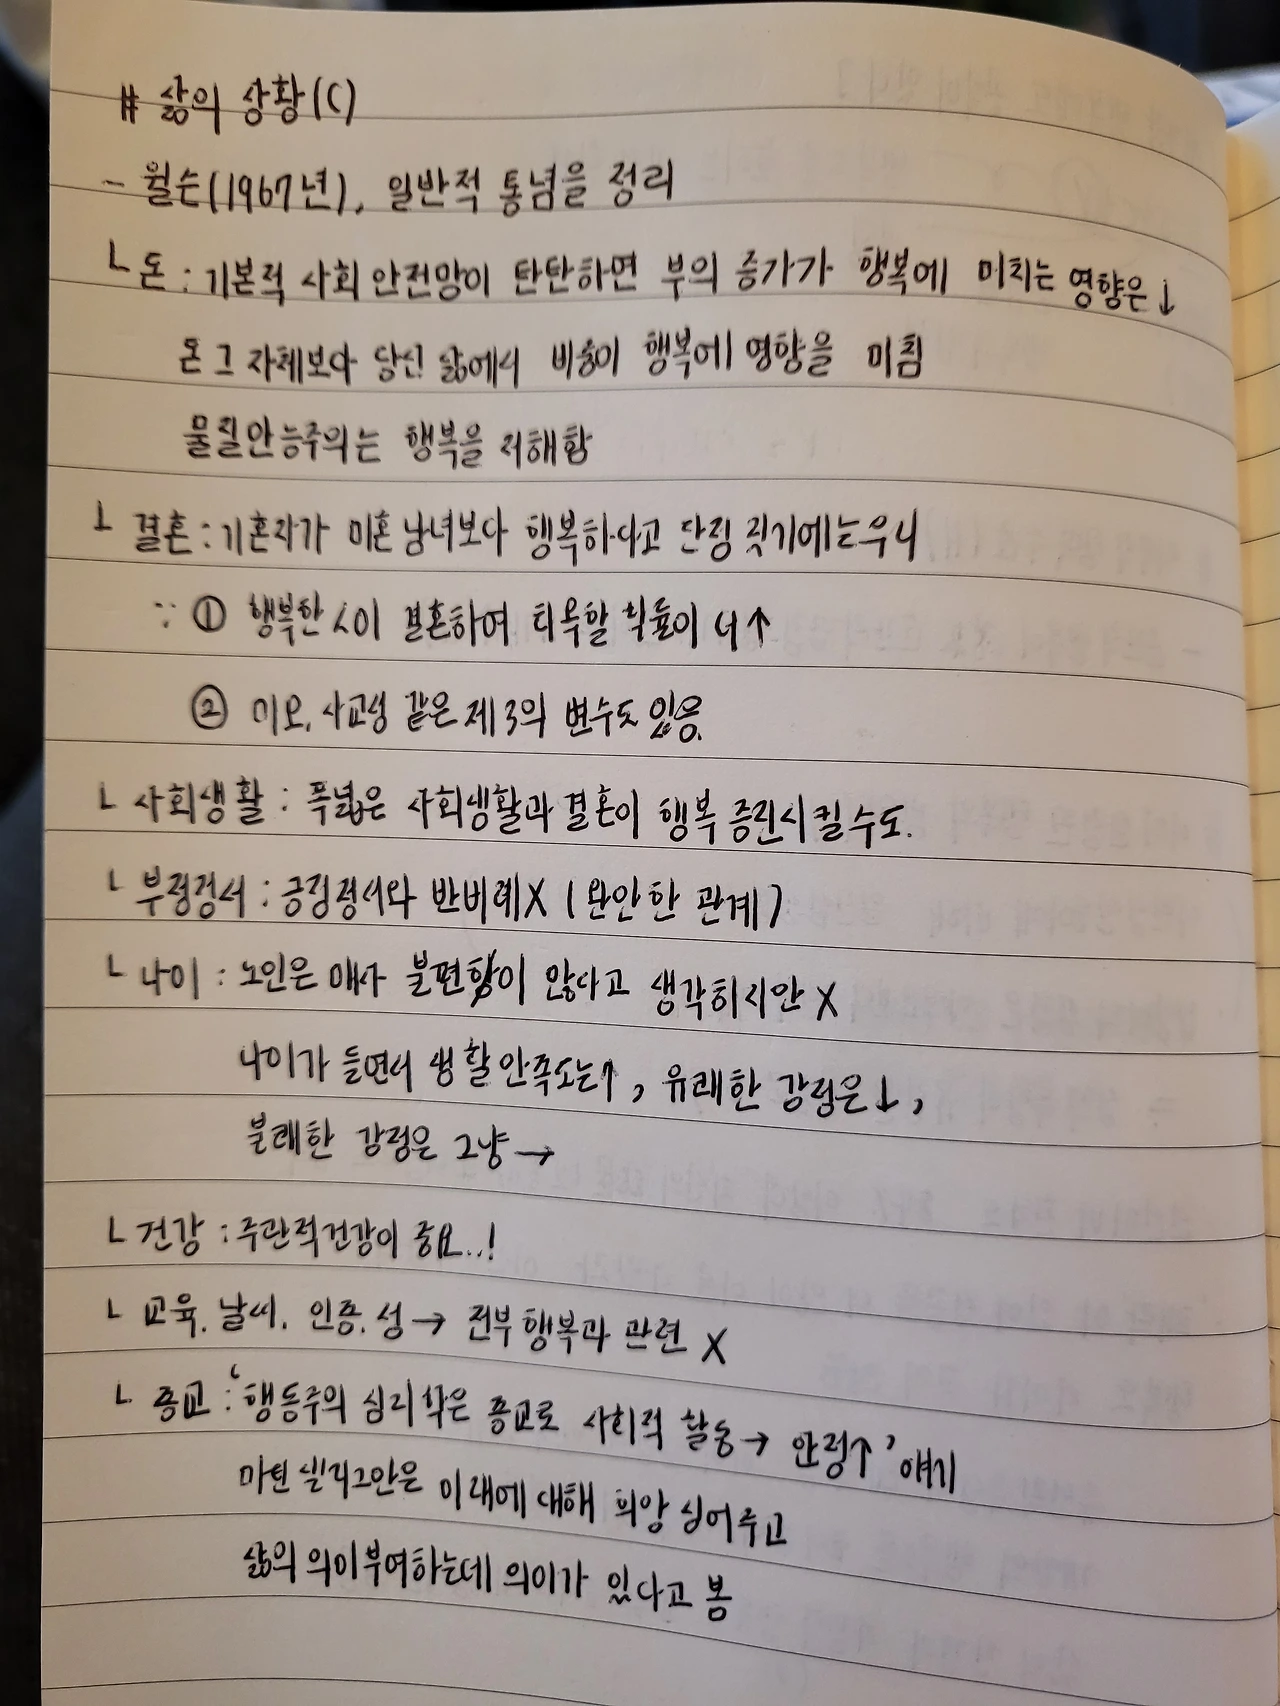 # 삶의 상황(C)
- 윌슨(1967년), 일반적 통념을 정리
ㄴ 돈 : 기본적 사회 안전망이 탄탄하면 부의 증가가 행복에 미치는 영향은↓
돈 그 자체보다 당신 삶에서 비중이 행복에 영향을 미침
물질만능주의는 행복을 저해함
ㄴ 결혼 : 기혼자가 미혼 남녀보다 행복하다고 단정 짓기에는 우너
∵ ① 행복한 人이 결혼하여 더욱할 확률이 더↑
② 미모, 사교성 같은 제3의 변수도 있음.
ㄴ 사회생활 : 폭넓은 사회생활과 결혼이 행복 증진시킬수도.
ㄴ 부정정서 : 긍정정서와 반비례X (완만한 관계)
ㄴ 나이 : 노인은 매사 불편함이 많다고 생각하지만 X
나이가 들면서 생활만족도는↑, 유쾌한 감정은↓,
불쾌한 감정은 그냥→
ㄴ 건강 : 주관적건강이 중요..!
ㄴ 교육, 날씨, 인종, 성→ 전부 행복과 관련 X
ㄴ 종교 : '행동주의 심리학은 종교로 사회적 활동→ 안정↑' 얘기
마틴 셀리그만은 미래에 대해 희망 심어주고
삶의 의미부여하는데 의미가 있다고 봄